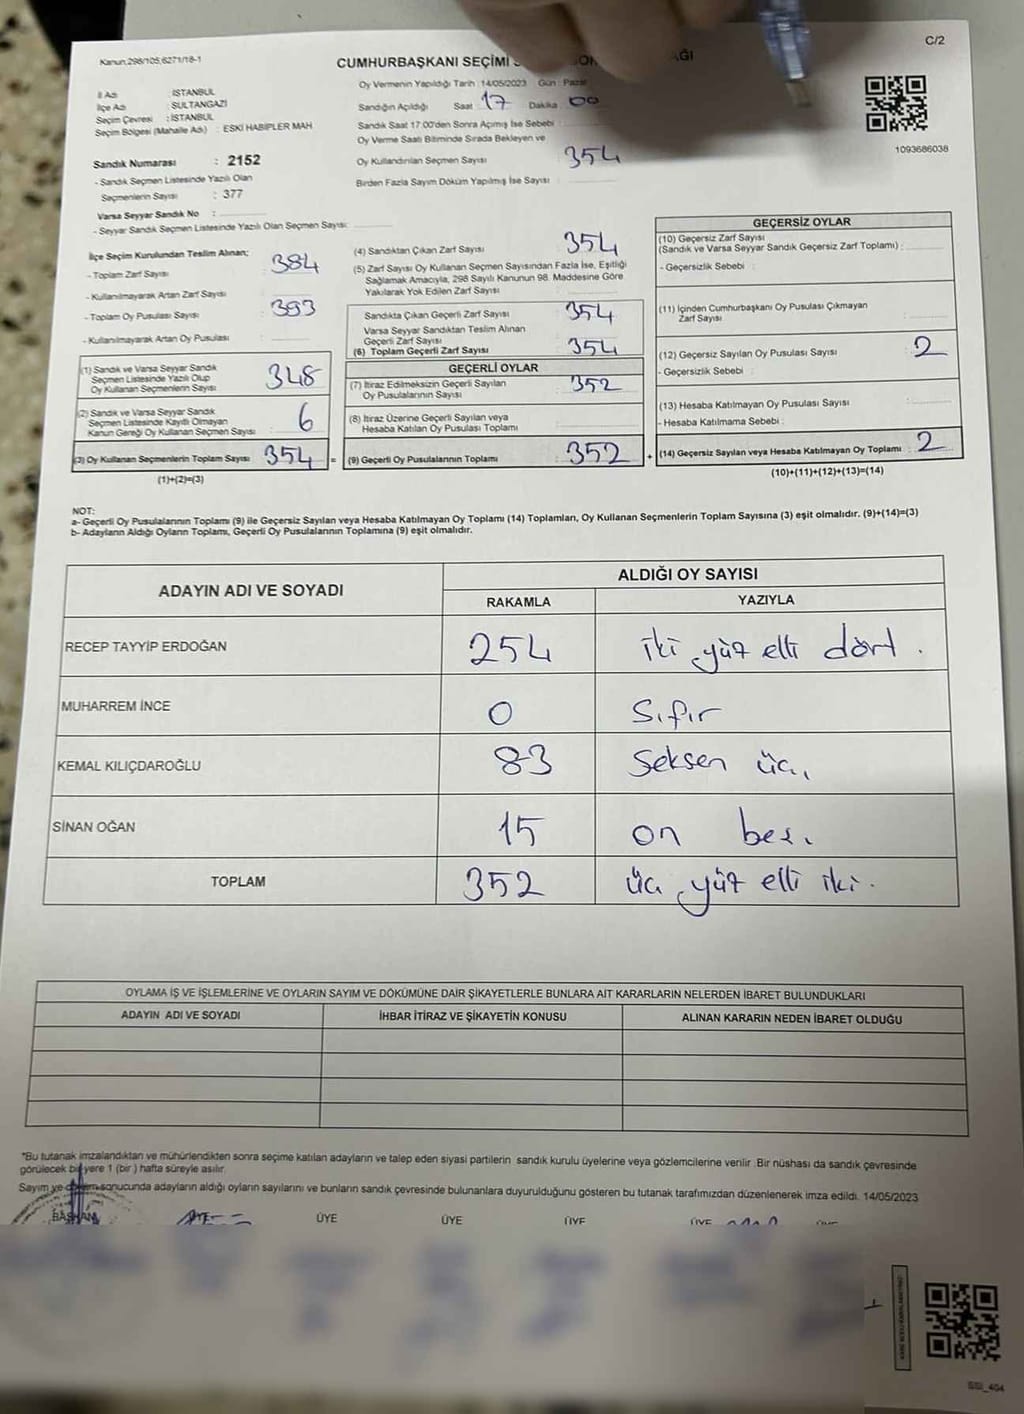 Kanun;298/105,6271/18-1
CUMHURBAŞKANI SEÇİMİ
C/2
İl Adı : İSTANBUL
İlçe Adı : SULTANGAZİ
Seçim Çevresi : İSTANBUL
Seçim Bölgesi (Mahalle Adı) : ESKİ HABİPLER MAH
Sandık Numarası : 2152
- Sandık Seçmen Listesinde Yazılı Olan
Seçmenlerin Sayısı : 377
Varsa Seyyar Sandık No :
- Seyyar Sandık Seçmen Listesinde Yazılı Olan Seçmen Sayısı:
Oy Vermenin Yapıldığı Tarih :14/05/2023 Gün : Pazar
Sandığın Açıldığı Saat 17 Dakika 00
Sandık Saat 17:00'den Sonra Açılmış İse Sebebi :
Oy Verme Saati Bitiminde Sırada Bekleyen ve
Oy Kullandırılan Seçmen Sayısı 354
Birden Fazla Sayım Döküm Yapılmış İse Sayısı :
1093686038
İlçe Seçim Kurulundan Teslim Alınan;
- Toplam Zarf Sayısı 384
- Kullanılmayarak Artan Zarf Sayısı
- Toplam Oy Pusulası Sayısı: 393
- Kullanılmayarak Artan Oy Pusulası
(1) Sandık ve Varsa Seyyar Sandık
Seçmen Listesinde Yazılı Olup
Oy Kullanan Seçmenlerin Sayısı 348
(2) Sandık ve Varsa Seyyar Sandık
Seçmen Listesinde Kayıtlı Olmayan
Kanun Gereği Oy Kullanan Seçmen Sayısı 6
(3) Oy Kullanan Seçmenlerin Toplam Sayısı 354 =
(1)+(2)=(3)
(4) Sandıktan Çıkan Zarf Sayısı 354
(5) Zarf Sayısı Oy Kullanan Seçmen Sayısından Fazla İse, Eşitliği
Sağlamak Amacıyla, 298 Sayılı Kanunun 98. Maddesine Göre
Yakılarak Yok Edilen Zarf Sayısı
Sandıkta Çıkan Geçerli Zarf Sayısı 354
Varsa Seyyar Sandıktan Teslim Alınan
Geçerli Zarf Sayısı
(6) Toplam Geçerli Zarf Sayısı 354
GEÇERLİ OYLAR
(7) İtiraz Edilmeksizin Geçerli Sayılan
Oy Pusulalarının Sayısı 352
(8) İtiraz Üzerine Geçerli Sayılan veya
Hesaba Katılan Oy Pusulası Toplamı
(9) Geçerli Oy Pusulalarının Toplamı 352 +
GEÇERSİZ OYLAR
(10) Geçersiz Zarf Sayısı
(Sandık ve Varsa Seyyar Sandık Geçersiz Zarf Toplamı) :
- Geçersizlik Sebebi :
(11) İçinden Cumhurbaşkanı Oy Pusulası Çıkmayan
Zarf Sayısı
(12) Geçersiz Sayılan Oy Pusulası Sayısı 2
- Geçersizlik Sebebi :
(13) Hesaba Katılmayan Oy Pusulası Sayısı
- Hesaba Katılmama Sebebi :
(14) Geçersiz Sayılan veya Hesaba Katılmayan Oy Toplamı : 2
(10)+(11)+(12)+(13)=(14)
NOT:
a- Geçerli Oy Pusulalarının Toplamı (9) ile Geçersiz Sayılan veya Hesaba Katılmayan Oy Toplamı (14) Toplamları, Oy Kullanan Seçmenlerin Toplam Sayısına (3) eşit olmalıdır. (9)+(14)=(3)
b- Adayların Aldığı Oyların Toplamı, Geçerli Oy Pusulalarının Toplamına (9) eşit olmalıdır.
ADAYIN ADI VE SOYADI ALDIĞI OY SAYISI
RAKAMLA YAZIYLA
RECEP TAYYİP ERDOĞAN 254 iki yüz elli dört .
MUHARREM İNCE 0 Sıfır
KEMAL KILIÇDAROĞLU 83 Seksen üç.
SİNAN OĞAN 15 on beş.
TOPLAM 352 üç yüz elli iki.
OYLAMA İŞ VE İŞLEMLERİNE VE OYLARIN SAYIM VE DÖKÜMÜNE DAİR ŞİKAYETLERLE BUNLARA AİT KARARLARIN NELERDEN İBARET BULUNDUKLARI
ADAYIN ADI VE SOYADI İHBAR İTİRAZ VE ŞİKAYETİN KONUSU ALINAN KARARIN NEDEN İBARET OLDUĞU
"Bu tutanak imzalandıktan ve mühürlendikten sonra seçime katılan adayların ve talep eden siyasi partilerin sandık kurulu üyelerine veya gözlemcilerine verilir .Bir nüshası da sandık çevresinde
görülecek bir yere 1 (bir ) hafta süreyle asılır.
Sayım ve döküm sonucunda adayların aldığı oyların sayılarını ve bunların sandık çevresinde bulunanlara duyurulduğunu gösteren bu tutanak tarafımızdan düzenlenerek imza edildi. 14/05/2023
BAŞKAN ÜYE ÜYE ÜYE ÜYE ÜYE